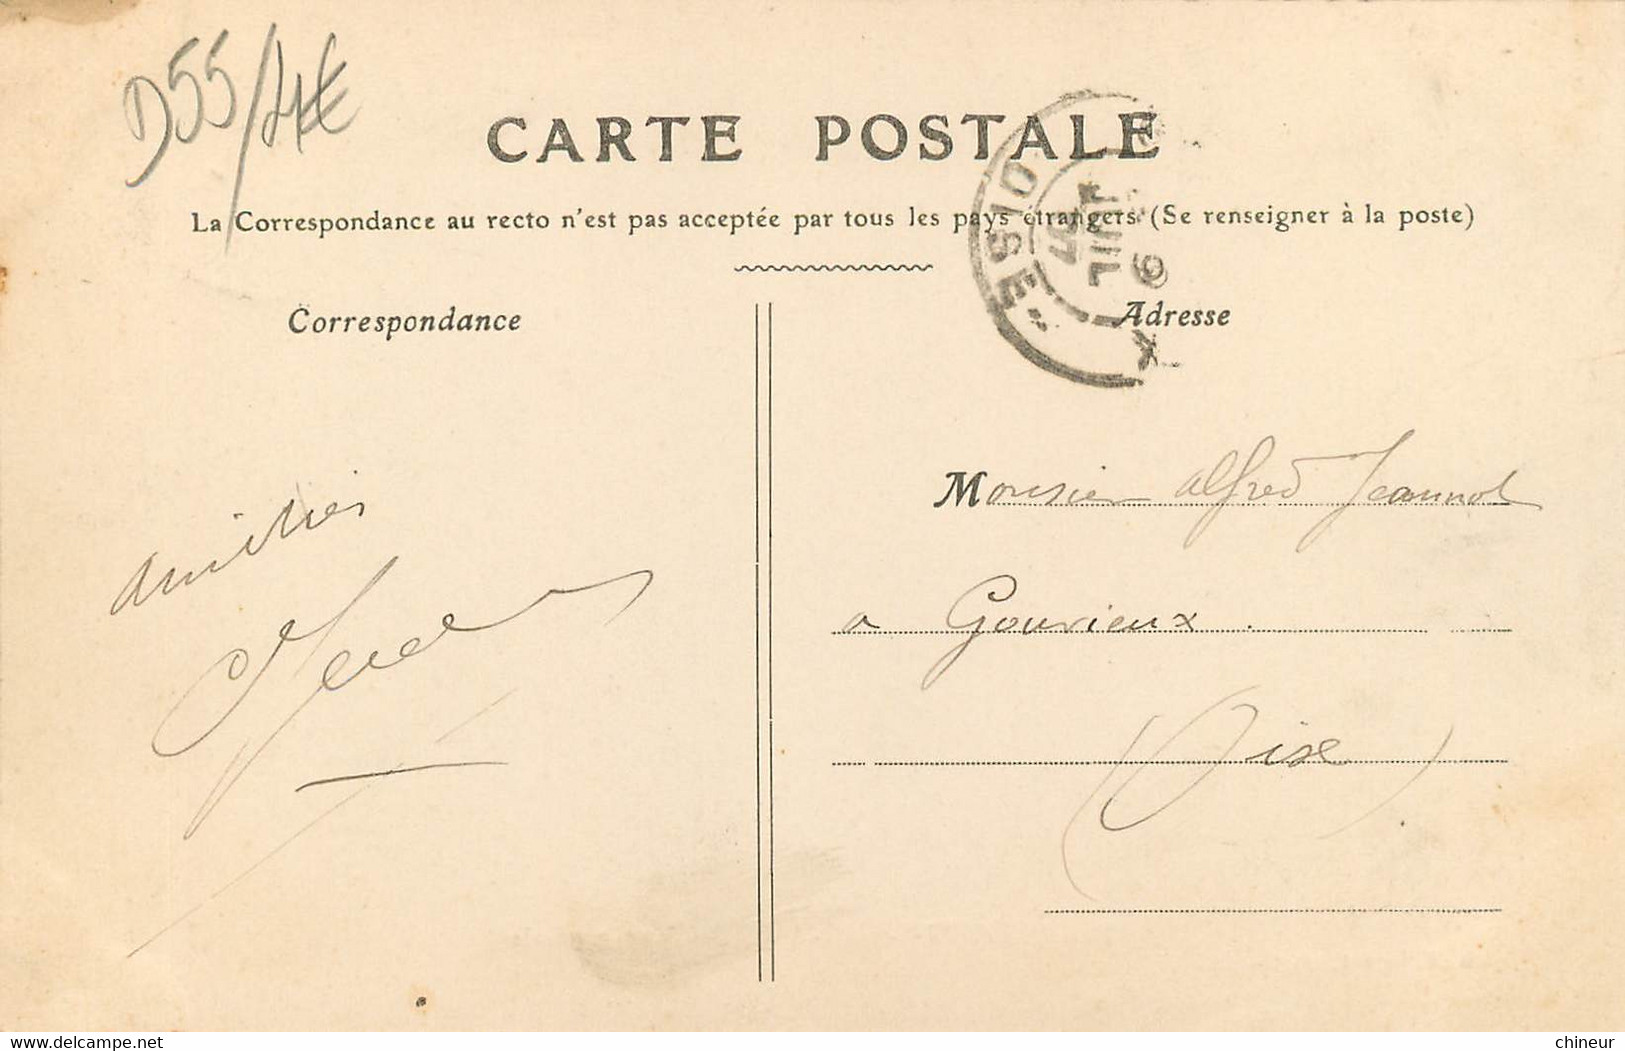 D55/4€
CARTE POSTALE
La Correspondance au recto n'est pas acceptée par tous les pays étrangers (Se renseigner à la poste)
OISE
9
JUIL
07
Correspondance
Adresse
Monsieur Alfred Jeannot
Amitiés
a Gouvieux.
(Oise).
delcampe.net
chineur